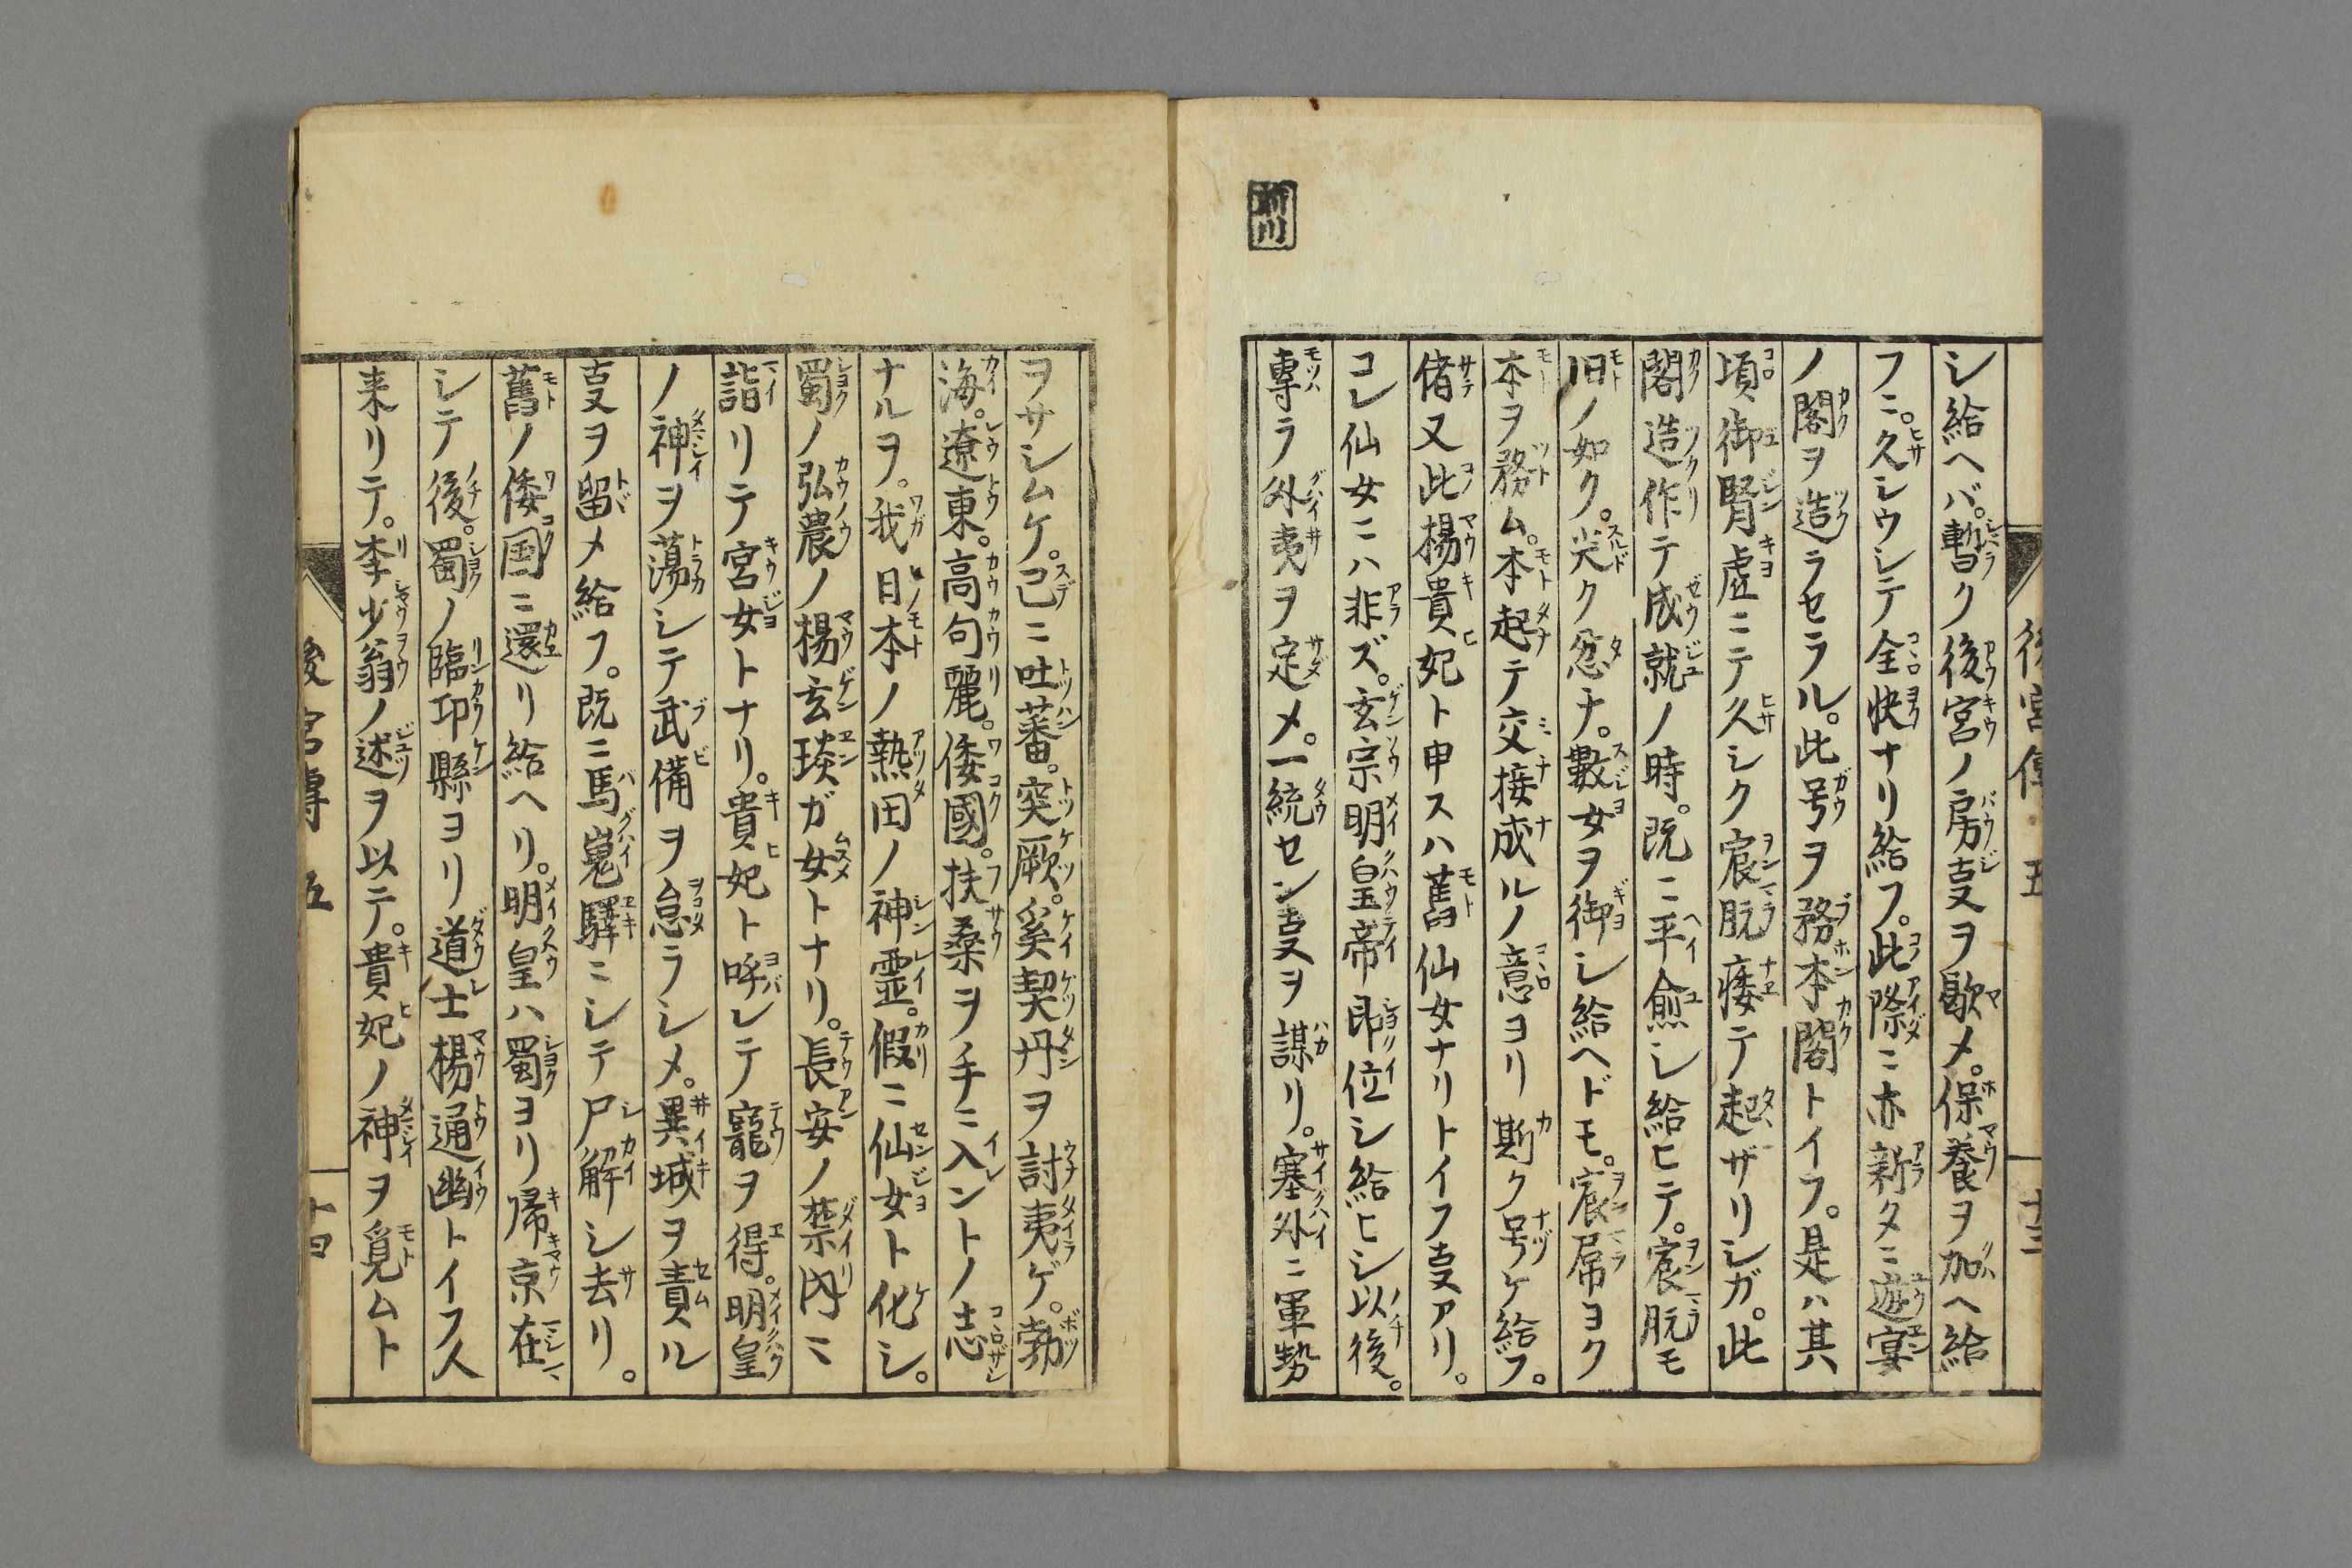 後宮傳 五 十三
シ給ヘバ。暫ク後宮ノ房㕝ヲ歇メ。保養ヲ加ヘ給
フニ。久シウシテ全快ナリ給フ。此際ニ亦新タニ遊宴
ノ閣ヲ造ラセラル。此号ヲ務本閣トイフ。是ハ其
頃御腎虚ニテ久シク宸朊痿テ起ザリシガ。此
閣造作テ成就ノ時。既ニ平愈シ給ヒテ。宸朊モ
旧ノ如ク。尖ク忿ナ。數女ヲ御シ給ヘドモ。宸屌ヨク
本ヲ務ム。本起テ交接成ルノ意ヨリ斯ク号ケ給フ。
偖又此楊貴妃ト申スハ舊仙女ナリトイフ㕝アリ。
コレ仙女ニハ非ズ。玄宗明皇帝即位シ給ヒシ以後。
專ラ外夷ヲ定メ。一統セン㕝ヲ謀リ。塞外ニ軍勢
ヲサシムケ。已ニ吐蕃。突厥。奚契丹ヲ討夷ゲ。勃
海。遼東。高句麗。倭國。扶桑ヲ手ニ入ントノ志
ナルヲ。我日本ノ熱田ノ神靈。假ニ仙女ト化シ。
蜀ノ弘農ノ楊玄琰ガ女トナリ。長安ノ禁内ニ
詣リテ宮女トナリ。貴妃ト呼レテ寵ヲ得。明皇
ノ神ヲ蕩シテ武備ヲ怠ラシメ。異域ヲ責ル
㕝ヲ留メ給フ。既ニ馬嵬驛ニシテ尸解シ去リ。
舊ノ倭国ニ還リ給ヘリ。明皇ハ蜀ヨリ帰京在
シテ後。蜀ノ臨邛縣ヨリ道士楊通幽トイフ人
来リテ。李少翁ノ述ヲ以テ。貴妃ノ神ヲ覓ムト
後宮傳 五 十四